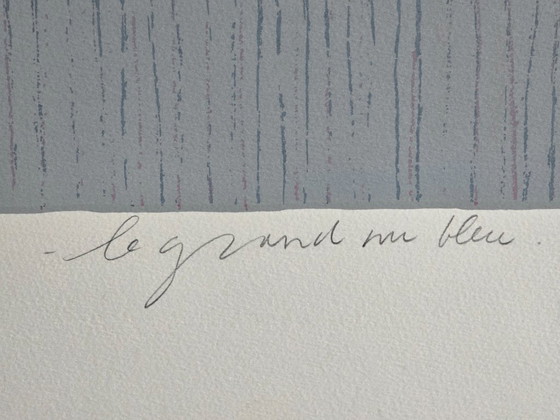 - le grand nu bleu.